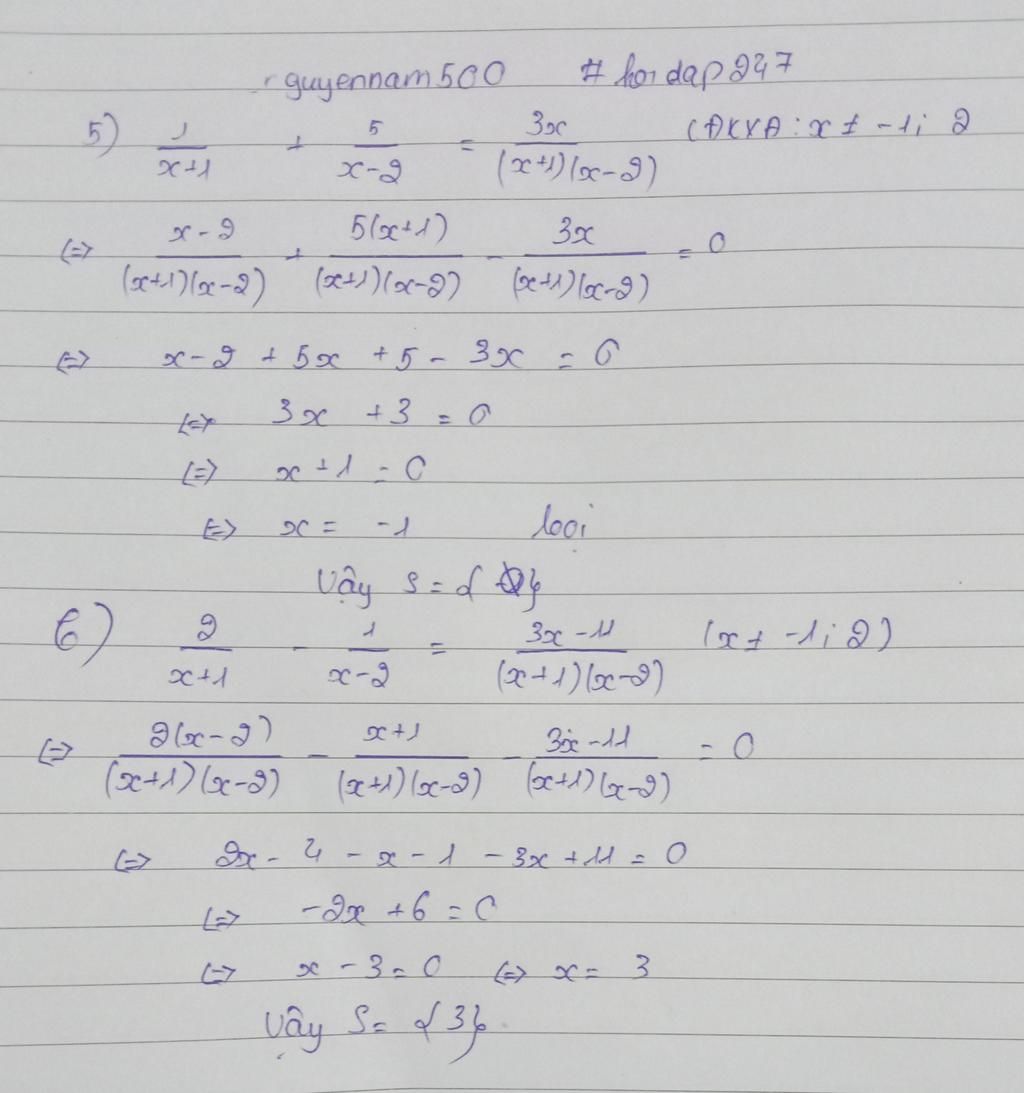 guyennam500 #hoidap247
5) 1/(x+1) + 5/(x-2) = 3x/((x+1)(x-2)) (ĐKXĐ: x ≠ -1; 2
<=> (x-2)/((x+1)(x-2)) + 5(x+1)/((x+1)(x-2)) - 3x/((x+1)(x-2)) = 0
<=> x-2 + 5x + 5 - 3x = 0
<=> 3x + 3 = 0
<=> x + 1 = 0
<=> x = -1 loại
Vậy S = {∅}
6) 2/(x+1) - 1/(x-2) = (3x-11)/((x+1)(x-2)) (x ≠ -1; 2)
<=> 2(x-2)/((x+1)(x-2)) - (x+1)/((x+1)(x-2)) - (3x-11)/((x+1)(x-2)) = 0
<=> 2x - 4 - x - 1 - 3x + 11 = 0
<=> -2x + 6 = 0
<=> x - 3 = 0 <=> x = 3
Vậy S = {3}